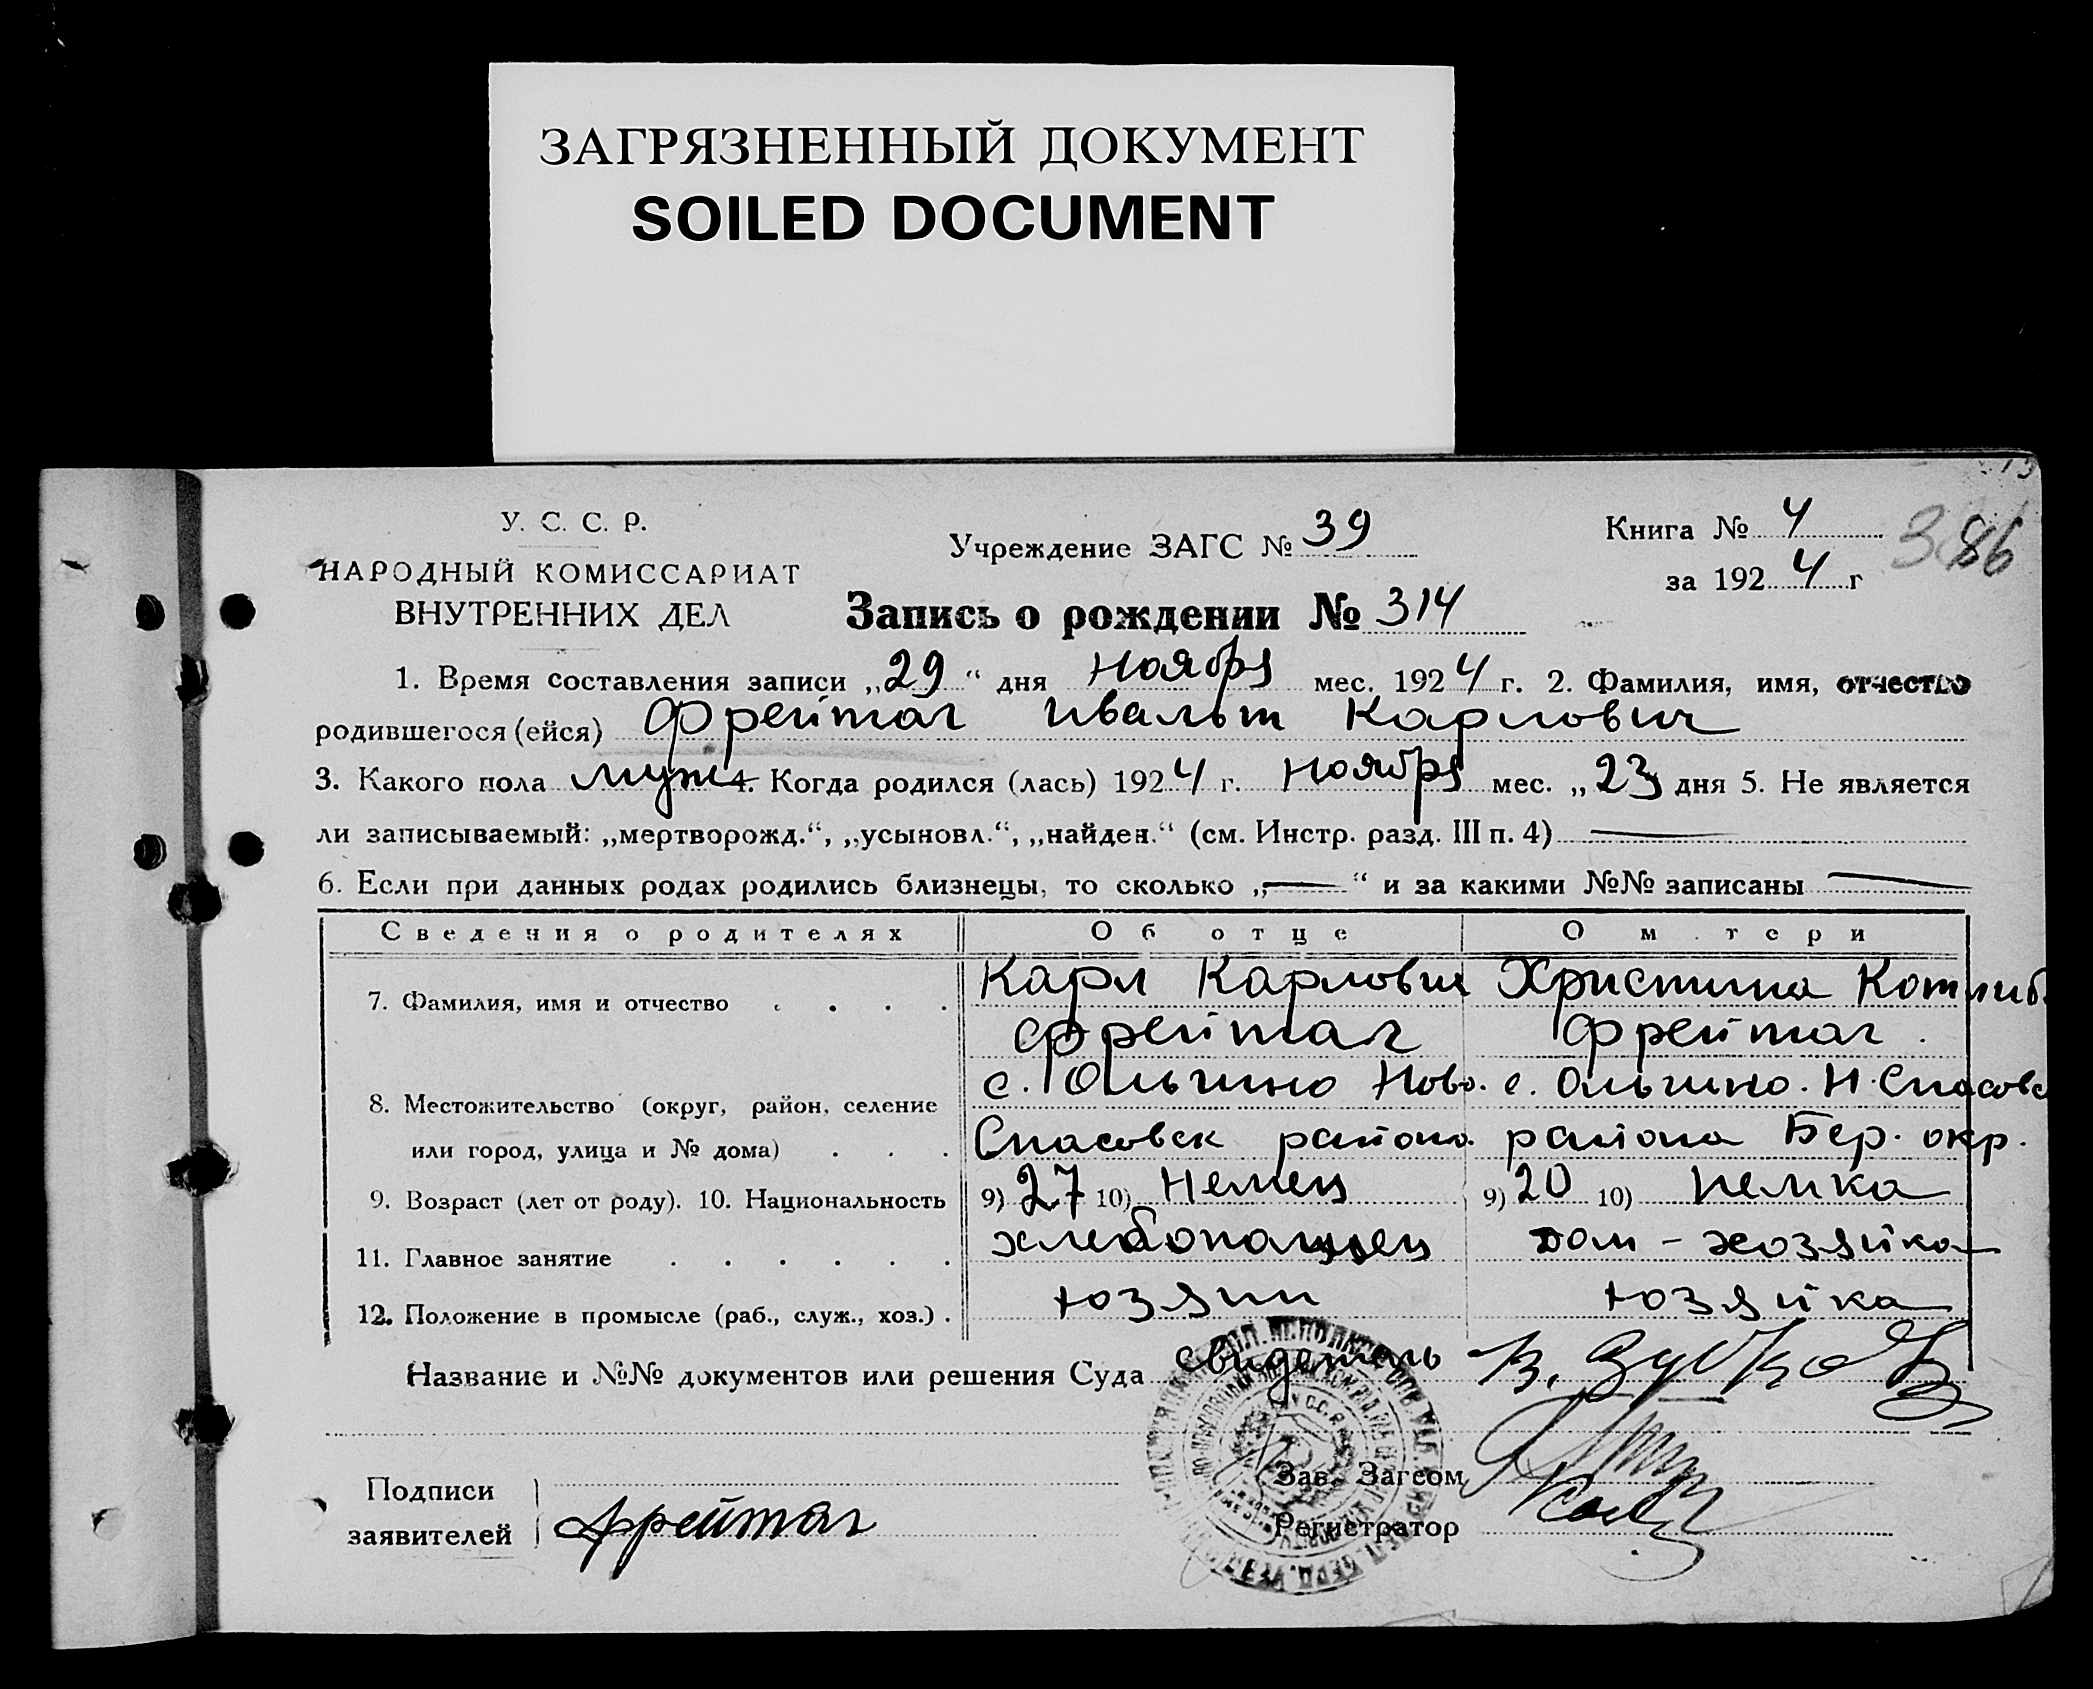 ЗАГРЯЗНЕННЫЙ ДОКУМЕНТ
SOILED DOCUMENT
У. С. С. Р.
НАРОДНЫЙ КОМИССАРИАТ
ВНУТРЕННИХ ДЕЛ
Учреждение ЗАГС № 39
Книга № 4
за 1924 г
386
Запись о рождении № 314
1. Время составления записи „29“ дня ноября мес. 1924 г. 2. Фамилия, имя, отчество
родившегося (ейся) Фрейтаг Ивальт Карлович
3. Какого пола муж 4. Когда родился (лась) 1924 г. ноября мес. „23 дня 5. Не является
ли записываемый: „мертворожд.“, „усыновл.“, „найден.“ (см. Инстр. разд. III п. 4) —
6. Если при данных родах родились близнецы, то сколько „—“ и за какими №№ записаны —
Сведения о родителях Об отце О м тери
7. Фамилия, имя и отчество . . . . Карл Карлович Христина Котлиб.
Фрейтаг Фрейтаг.
8. Местожительство (округ, район, селение с. Ольгино Ново. с. Ольгино. Н. Спасовс
или город, улица и № дома) . . . Спасовск района района Бер. окр.
9. Возраст (лет от роду). 10. Национальность 9) 27 10) Немец 9) 20 10) немка
11. Главное занятие . . . . . . хлебопашец дом-хозяйка
12. Положение в промысле (раб., служ., хоз.) . хозяин хозяйка
Название и №№ документов или решения Суда свидетель В. Зубков
Подписи
заявителей Фрейтаг
Зав. Загсом
Регистратор